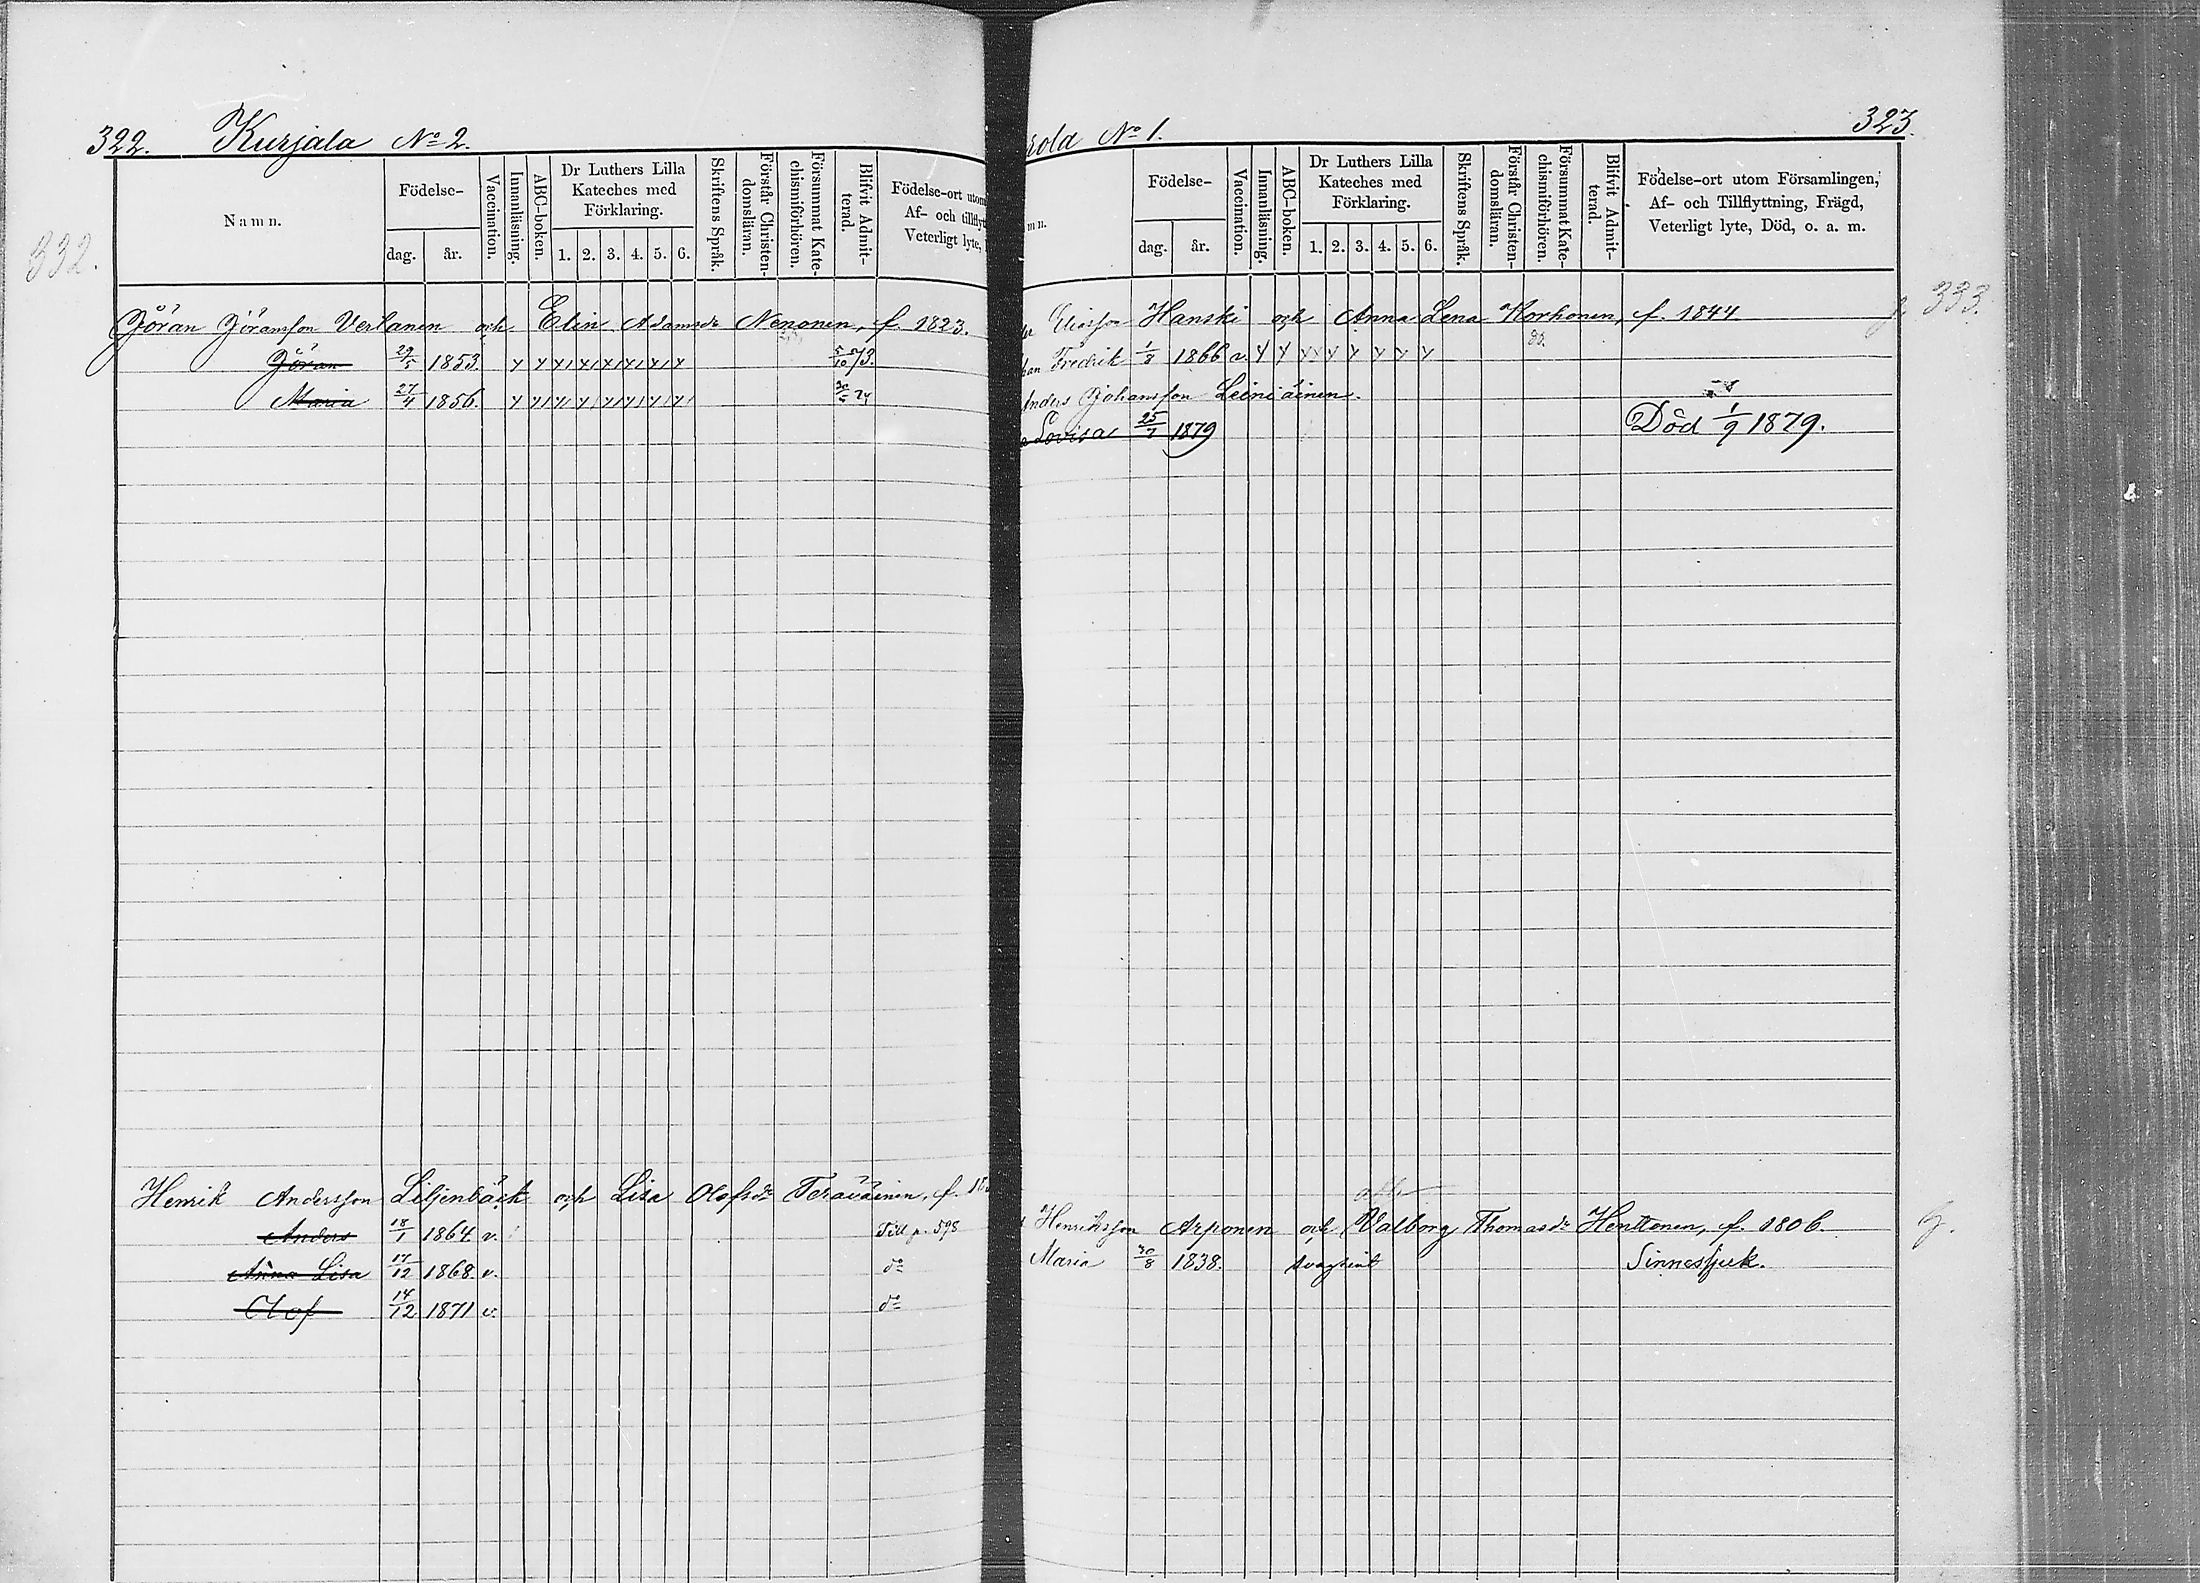 322. Kurjala No 2.
332.
Namn.
Födelse-
dag. år.
Vaccination.
Innanläsning.
ABC-boken.
Dr Luthers Lilla
Kateches med
Förklaring.
1. 2. 3. 4. 5. 6.
Skriftens Språk.
Förstår Christen-
domsläran.
Försummat Kate-
chismiförhören.
Blifvit Admit-
terad.
Födelse-ort utom
Af- och tillflyt
Veterligt lyte,
Göran Göransson Verlanen och Elin Adamsdr Nenonen, f. 1823.
Göran 29/5 1853. 5/10 73.
Maria 27/4 1856.
Henrik Andersson Liljenbäck och Lisa Olofsdr Teräväinen, f. 18
Anders 18/1 1864 v. Till p. 598
Anna Lisa 17/12 1868. v. do
Olof 14/12 1871 v. do
rola No 1.
323.
333.
mn.
Födelse-
dag. år.
Vaccination.
Innanläsning.
ABC-boken.
Dr Luthers Lilla
Kateches med
Förklaring.
1. 2. 3. 4. 5. 6.
Skriftens Språk.
Förstår Christen-
domsläran.
Försummat Kate-
chismiförhören.
Blifvit Admit-
terad.
Födelse-ort utom Församlingen,
Af- och Tillflyttning, Frägd,
Veterligt lyte, Död, o. a. m.
Eliasson Hanski och Anna Lena Korhonen, f. 1844
han Fredrik 1/8 1866 v.
Anders Johansson Leiniäinen.
Lovisa 25/7 1879 Död 1/9 1879.
Henriksson Arponen och Valborg Thomasdr Henttonen, f. 1806.
Maria 30/8 1838. svagsint Sinnessjuk.